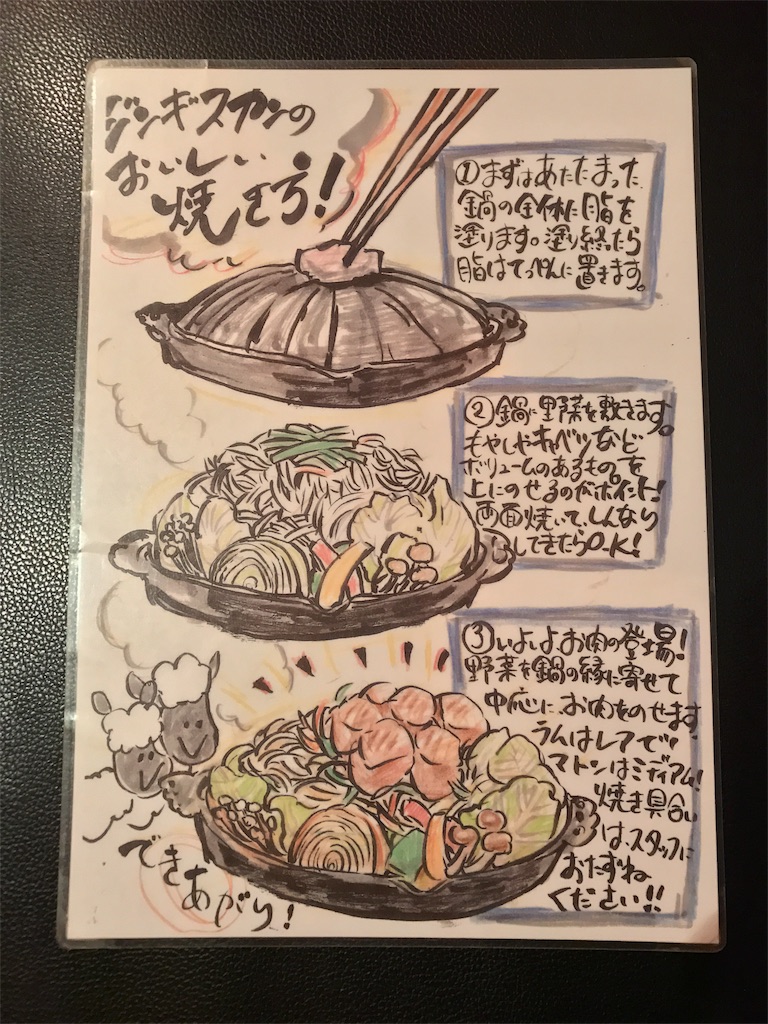 ジンギスカンの
おいしい
焼き方!
①まずはあたたまった
鍋の全体に脂を
塗ります。塗り終たら
脂はてっぺんに置きます。
②鍋に野菜を敷きます。
もやしやキャベツなど
ボリュームのあるもの。を
上にのせるのがポイント!
両面焼いて、しんなり
してきたらO-K!
③いよいよお肉の登場!
野菜を鍋の縁に寄せて
中応に、お肉をのせます
ラムはレアで!
マトンはミディアム!
焼き具合い
は、スタッフに
おたずね
ください!!
できあがり!